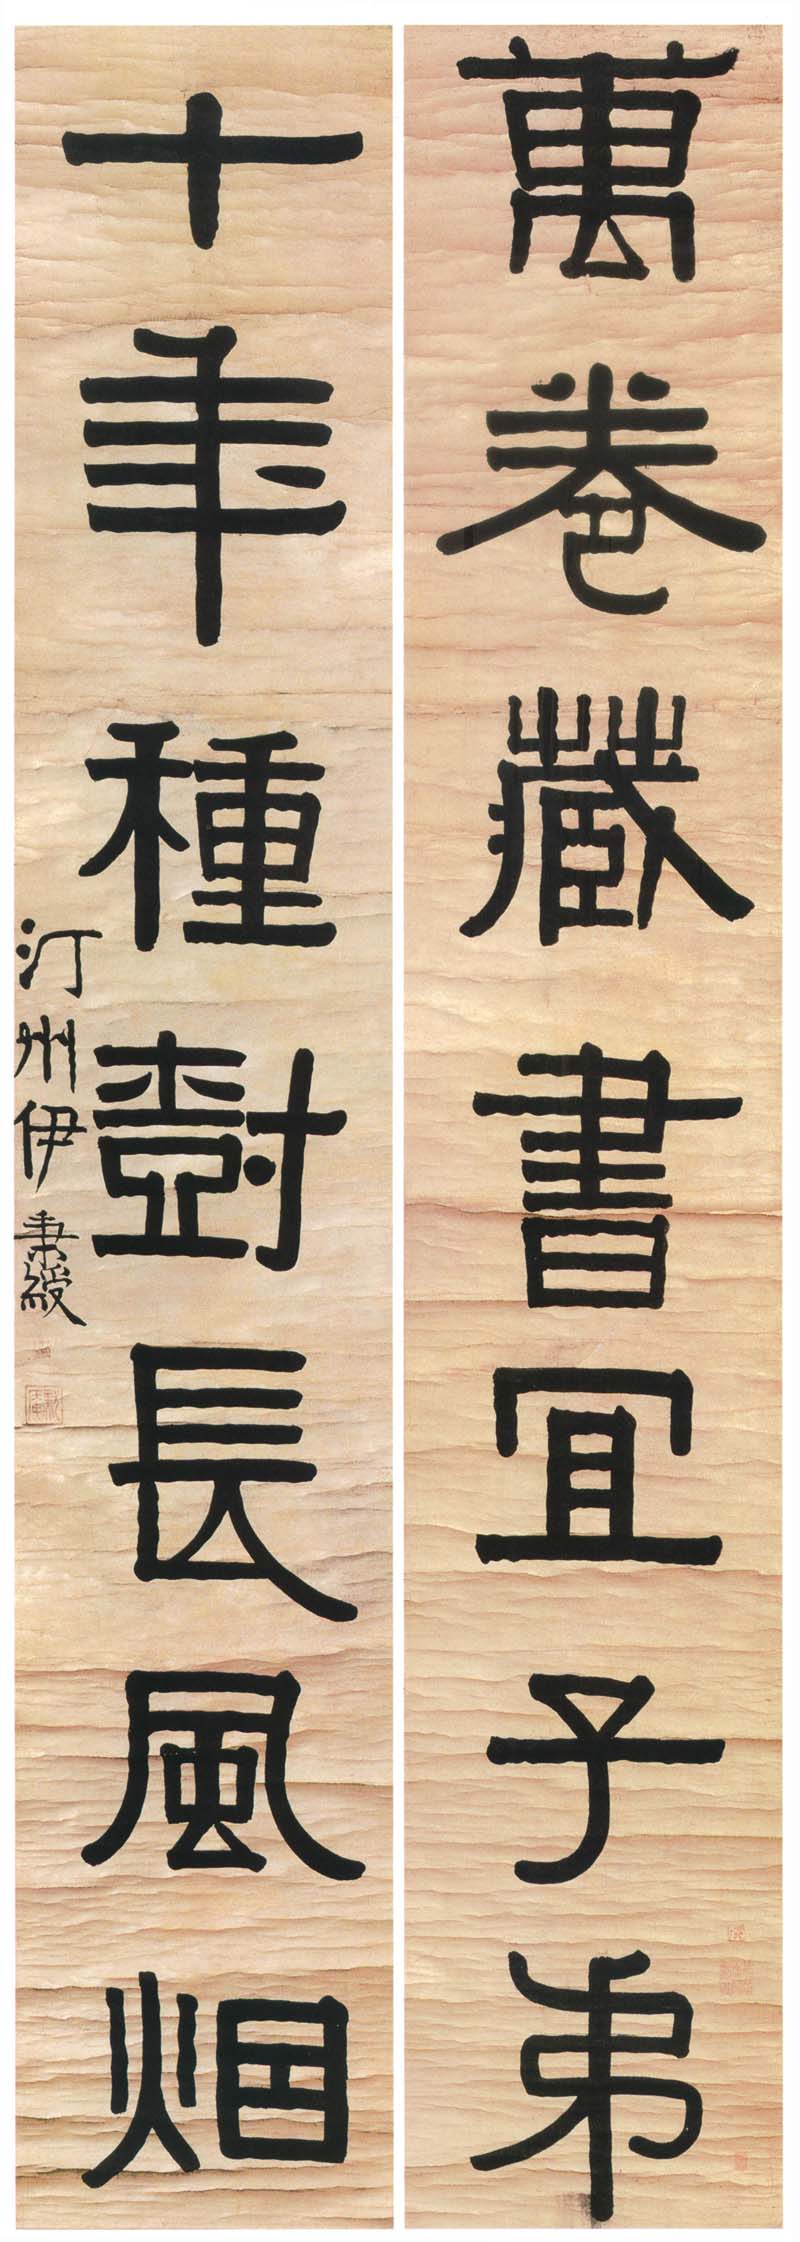 萬卷藏書宜子弟
十年種樹長風烟
汀州伊秉綬